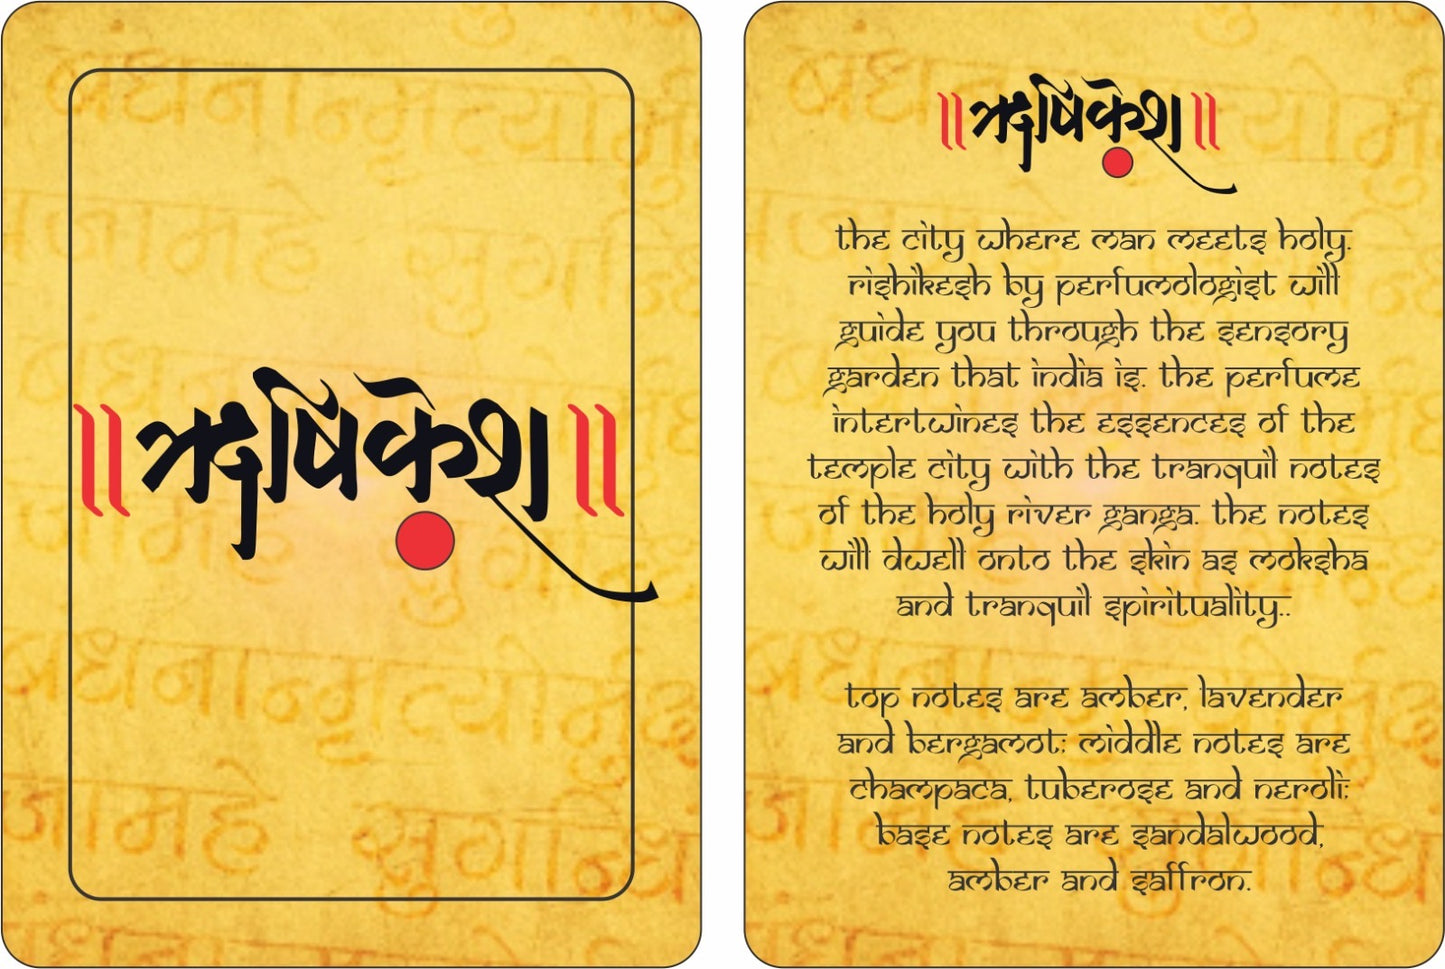 ॥ऋषिकेश॥
॥ऋषिकेश॥
the city where man meets holy.
rishikesh by perfumologist will
guide you through the sensory
garden that india is. the perfume
intertwines the essences of the
temple city with the tranquil notes
of the holy river ganga. the notes
will dwell onto the skin as moksha
and tranquil spirituality..
top notes are amber, lavender
and bergamot; middle notes are
champaca, tuberose and neroli;
base notes are sandalwood,
amber and saffron.